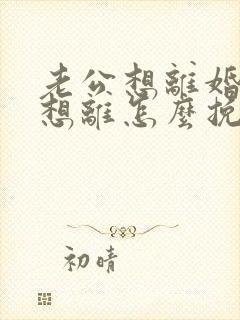 老公想離婚
想離怎麼挽
初晴